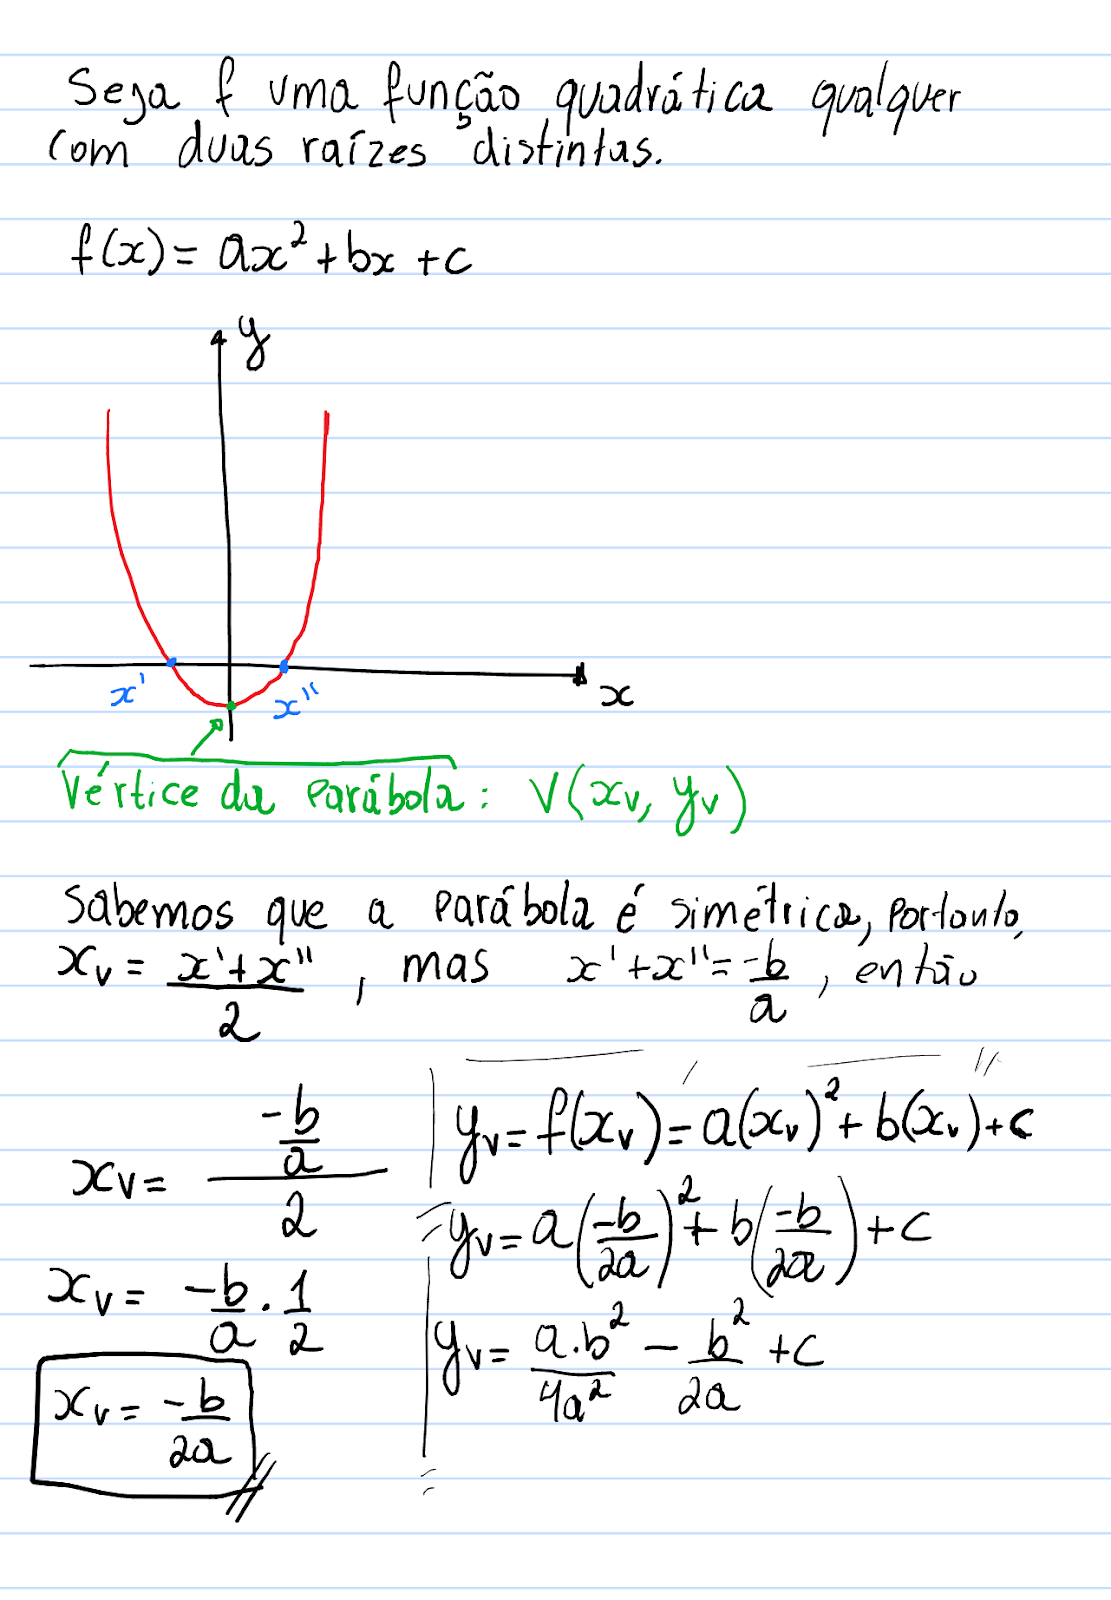 Seja f uma função quadrática qualquer
com duas raízes distintas.
f(x) = ax² + bx + c
y
x' x'' x
Vértice da Parábola: V(xᵥ, yᵥ)
Sabemos que a Parábola é simétrica, Portanto,
xᵥ = (x' + x'')/2, mas x' + x'' = -b/a, então
xᵥ = (-b/a)/2
xᵥ = -b/a . 1/2
xᵥ = -b/2a
yᵥ = f(xᵥ) = a(xᵥ)² + b(xᵥ) + c
yᵥ = a(-b/2a)² + b(-b/2a) + c
yᵥ = a.b²/4a² - b²/2a + c